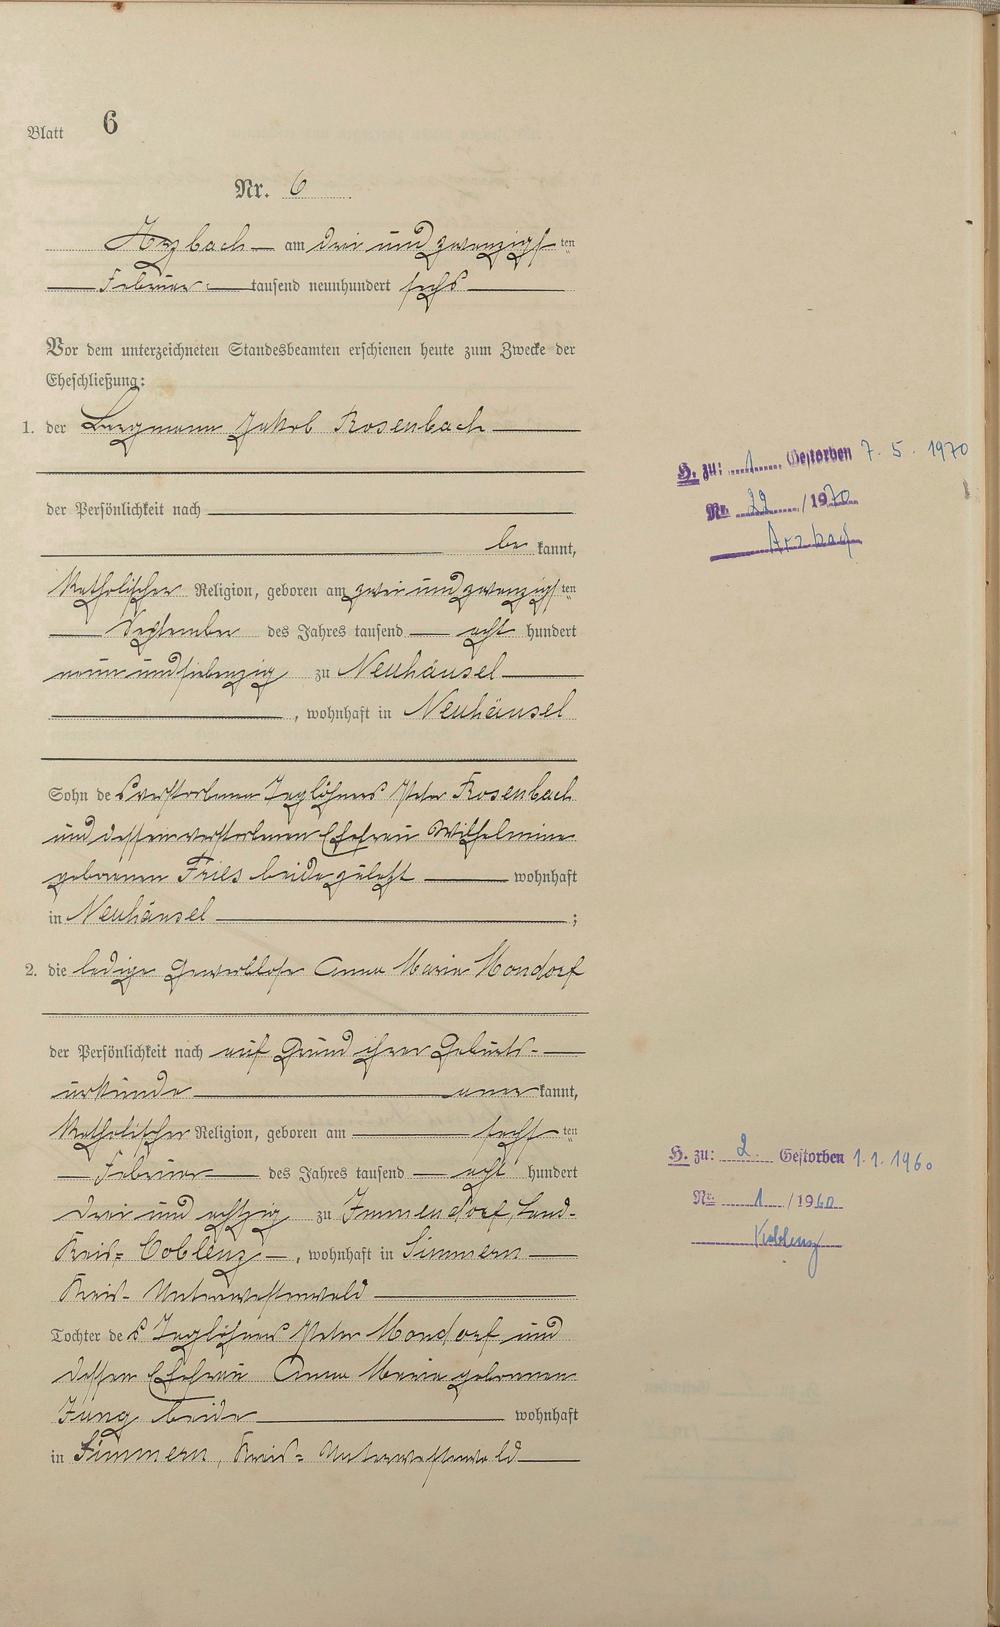 Blatt 6
Nr. 6
Arzbach am drei und zwanzigsten
Februar tausend neunhundert sechs
Vor dem unterzeichneten Standesbeamten erschienen heute zum Zwecke der
Eheschließung:
1. der Bergmann Jakob Rosenbach
der Persönlichkeit nach
be kannt,
katholischer Religion, geboren am zwei und zwanzigsten
September des Jahres tausend acht hundert
neun und siebenzig zu Neuhäusel
, wohnhaft in Neuhäusel
Sohn des verstorbenen Taglöhners Peter Rosenbach
und dessen verstorbenen Ehefrau Wilhelmine
geborenen Fries beide zuletzt wohnhaft
in Neuhäusel ;
2. die ledige gewerblose Anna Maria Mondorf
der Persönlichkeit nach auf Grund ihrer Geburts-
urkunde aner kannt,
katholischer Religion, geboren am sechsten
Februar des Jahres tausend acht hundert
drei und achtzig zu Immendorf, Land-
kreis Coblenz, wohnhaft in Simmern
Kreis Unterwesterwald
Tochter des Taglöhners Peter Mondorf und
dessen Ehefrau Anna Maria geborenen
Jung beide wohnhaft
in Simmern, Kreis Unterwesterwald
H. zu: 1 Gestorben 7.5.1970
Nr. 22 /1970
Arzbach
H. zu: 2. Gestorben 1.1.1960
Nr. 1 /1960
Koblenz